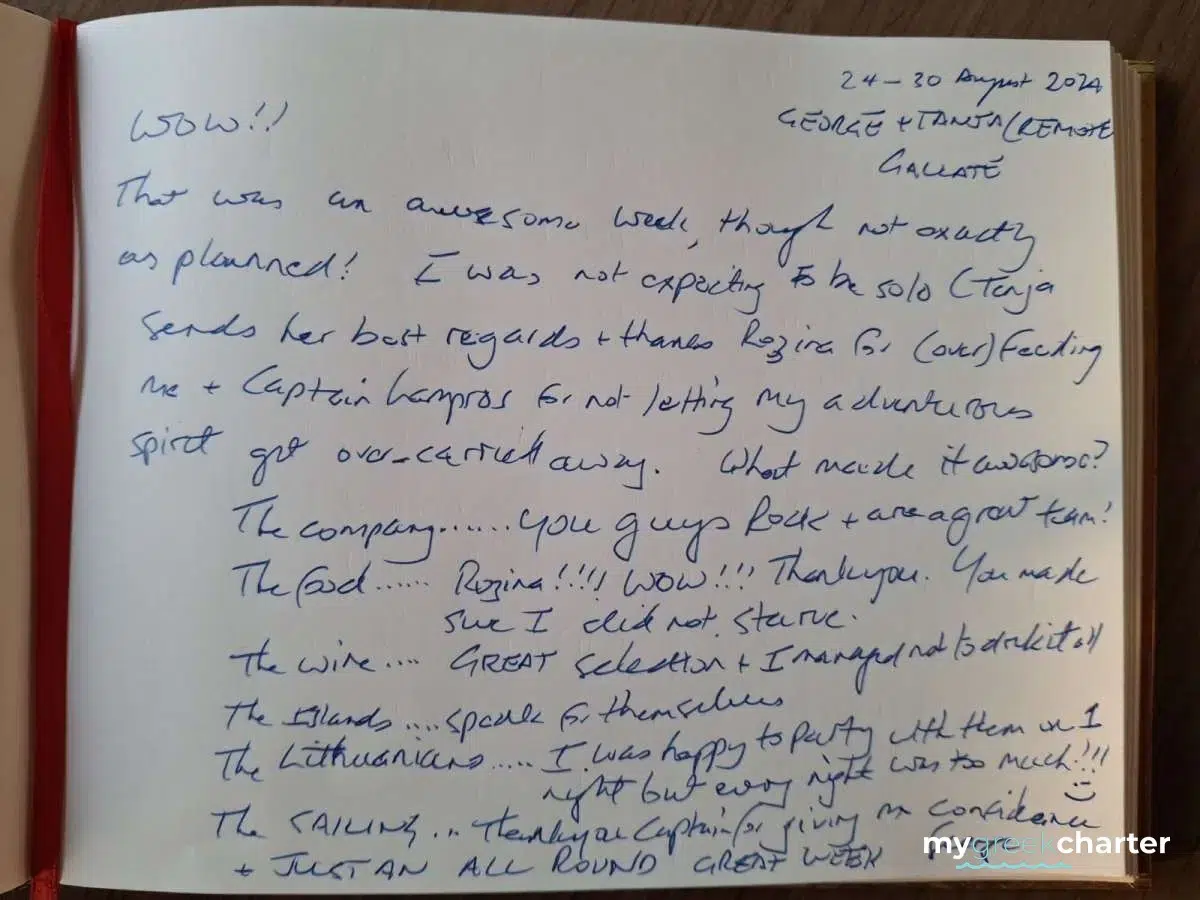 24 – 30 August 2024
GEORGE + TANJA (REMOTE
GALLATE
WOW!!
That was an awesome week, though not exactly
as planned! I was not expecting to be solo (Tanja
sends her best regards + thanks Rozina for (over) feeding
me + Captain Lampros for not letting my adventurous
spirit get over-carried away. What made it awesome?
The company...... You guys Rock + are a great team!
The food...... Rozina!!!! WOW!!! Thank you. You made
sure I did not starve.
The wine.... GREAT selection + I managed not to drink it all
The Islands .... speak for themselves
The Lithuanians..... I was happy to party with them on 1
night but every night was too much!!! :)
The SAILING... Thank you Captain for giving me confidence
+ JUST AN ALL ROUND GREAT WEEK
mygreekcharter